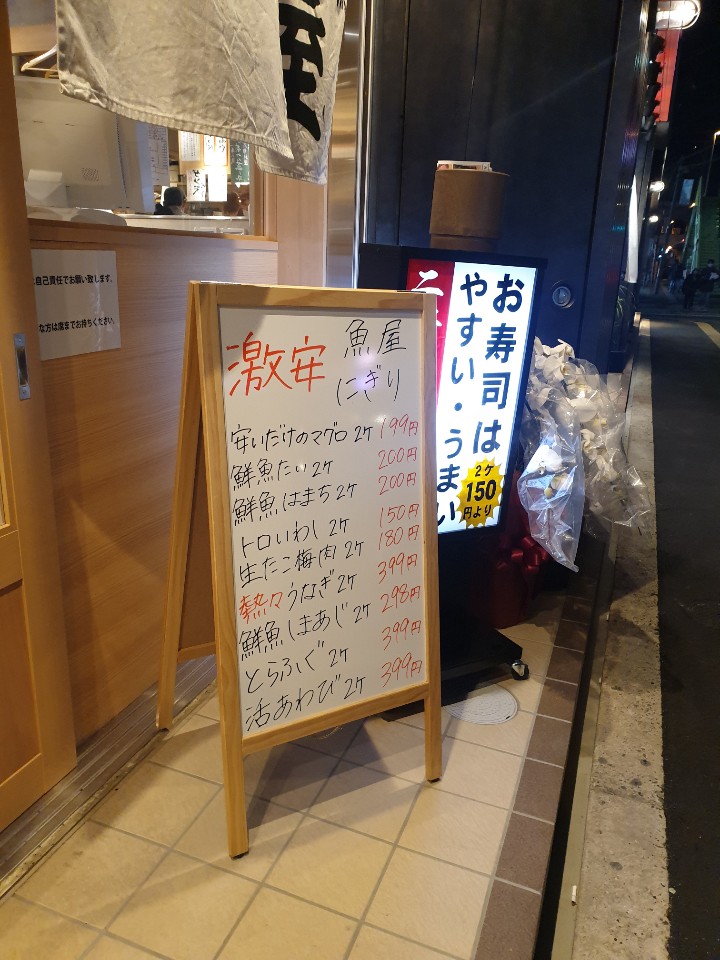 至
自己責任でお願い致します。
な方は席までお持ちください。
激安 魚屋
にぎり
安いだけのマグロ 2ケ 199円
鮮魚たい 2ケ 200円
鮮魚はまち 2ケ 200円
トロいわし 2ケ 150円
生たこ梅肉 2ケ 180円
熱々うなぎ 2ケ 399円
鮮魚しまあじ 2ケ 298円
とらふぐ 2ケ 399円
活あわび 2ケ 399円
お寿司は
やすい・うまい
2ケ
150
円より